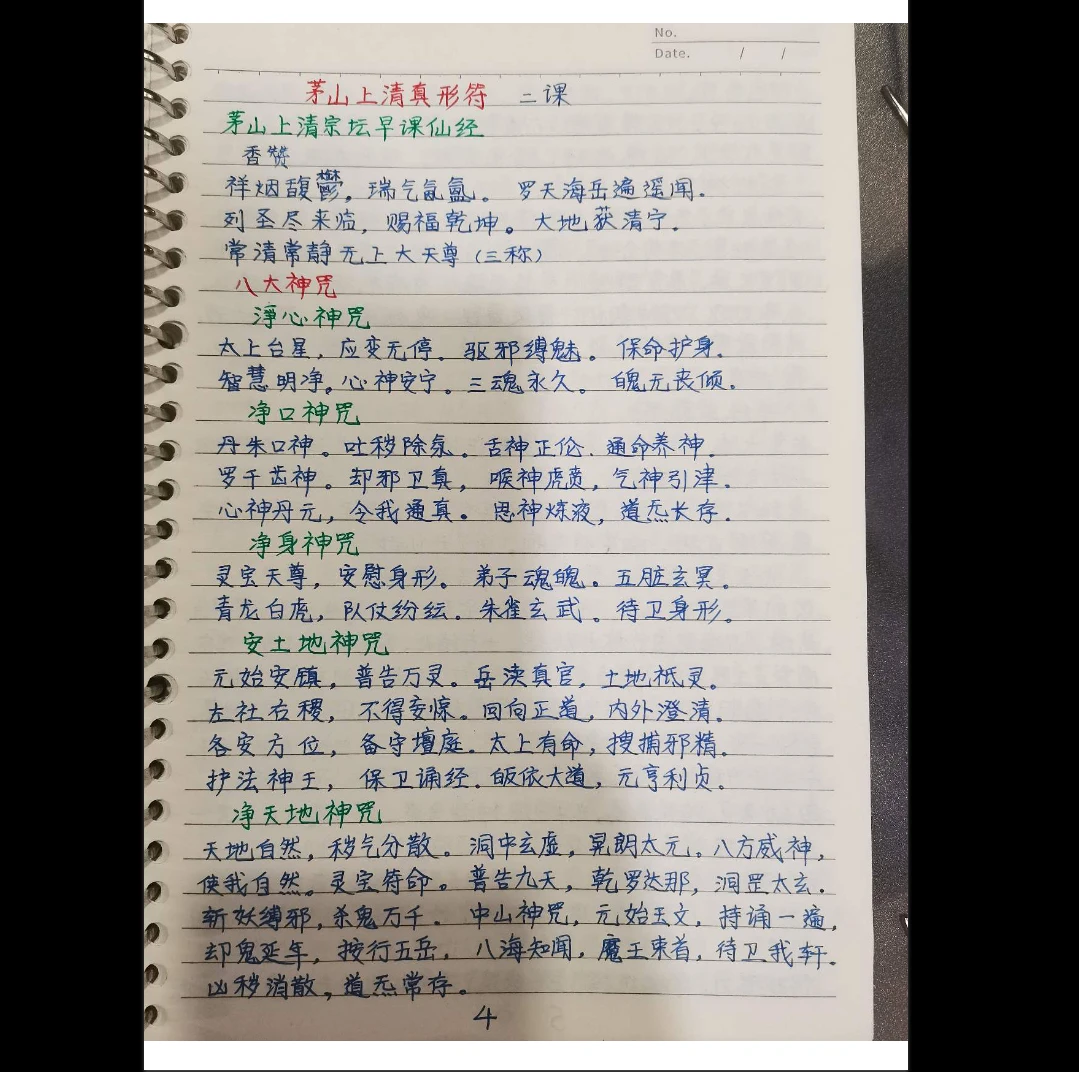 No.
Date. / /
茅山上清真形符 二课
茅山上清宗坛早课仙经
香赞
祥烟馥鬱，瑞气氤氲。罗天海岳遍遥闻.
列圣尽来临，赐福乾坤。大地获清宁.
常清常静无上大天尊（三称）
八大神咒
淨心神咒
太上台星，应变无停.驱邪缚魅。保命护身.
智慧明净。心神安宁.三魂永久。魄无丧倾.
净口神咒
丹朱口神。吐秽除氛。舌神正伦.通命养神.
罗千齿神。却邪卫真，喉神虎贲，气神引津.
心神丹元，令我通真。思神炼液，道炁长存.
净身神咒
灵宝天尊，安慰身形。弟子魂魄。五脏玄冥.
青龙白虎，队仗纷纭.朱雀玄武。待卫身形.
安土地神咒
元始安镇，普告万灵。岳渎真官，土地祇灵。
左社右稷，不得妄惊。回向正道，内外澄清.
各安方位，备守壇庭.太上有命，搜捕邪精.
护法神王，保卫诵经.皈依大道，元亨利贞.
净天地神咒
天地自然，秽气分散。洞中玄虚，晃朗太元。八方威神，
使我自然。灵宝符命。普告九天，乾罗达那，洞罡太玄.
斩妖缚邪，杀鬼万千.中山神咒，元始玉文，持诵一遍，
却鬼延年，按行五岳.八海知闻，魔王束首，待卫我轩.
凶秽消散，道炁常存。
4